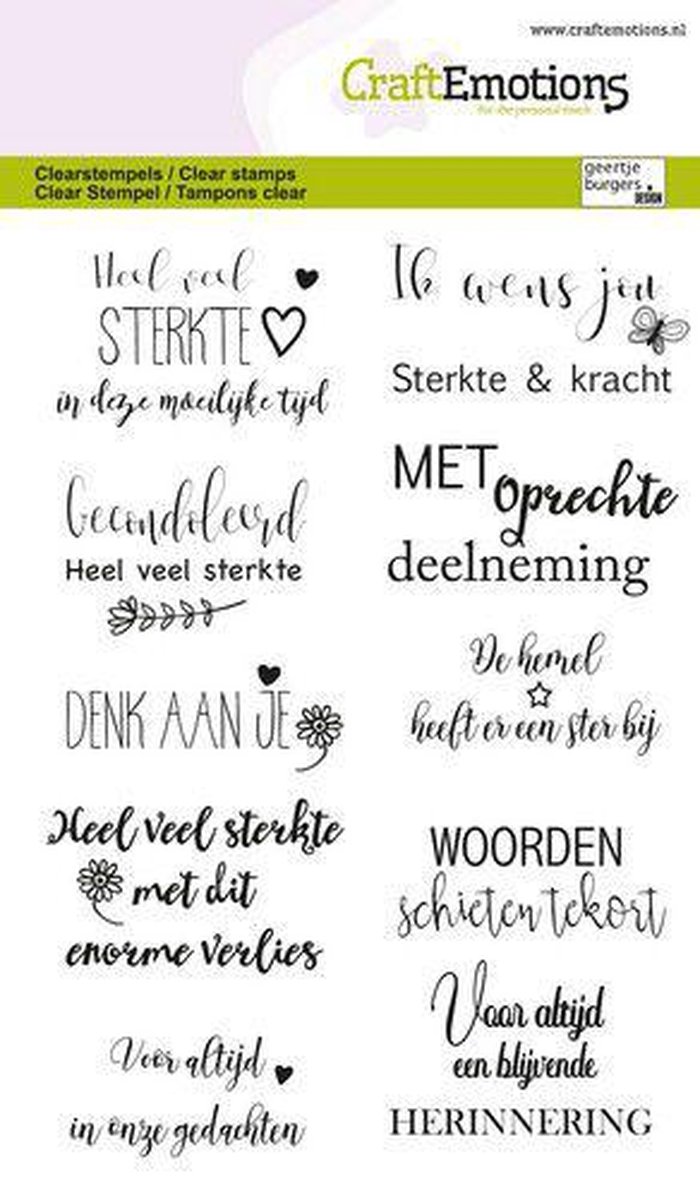 www.craftemotions.nl
CraftEmotions
for the personal touch
Clearstempels / Clear stamps
Clear Stempel / Tampons clear
geertje
burgers.
DESIGN
Heel veel
STERKTE
in deze moeilijke tijd
Gecondoleerd
Heel veel sterkte
DENK AAN JE
Heel veel sterkte
met dit
enorme verlies
Voor altijd
in onze gedachten
Ik wens jou
Sterkte & kracht
MET oprechte
deelneming
De hemel
heeft er een ster bij
WOORDEN
schieten tekort
Voor altijd
een blijvende
HERINNERING